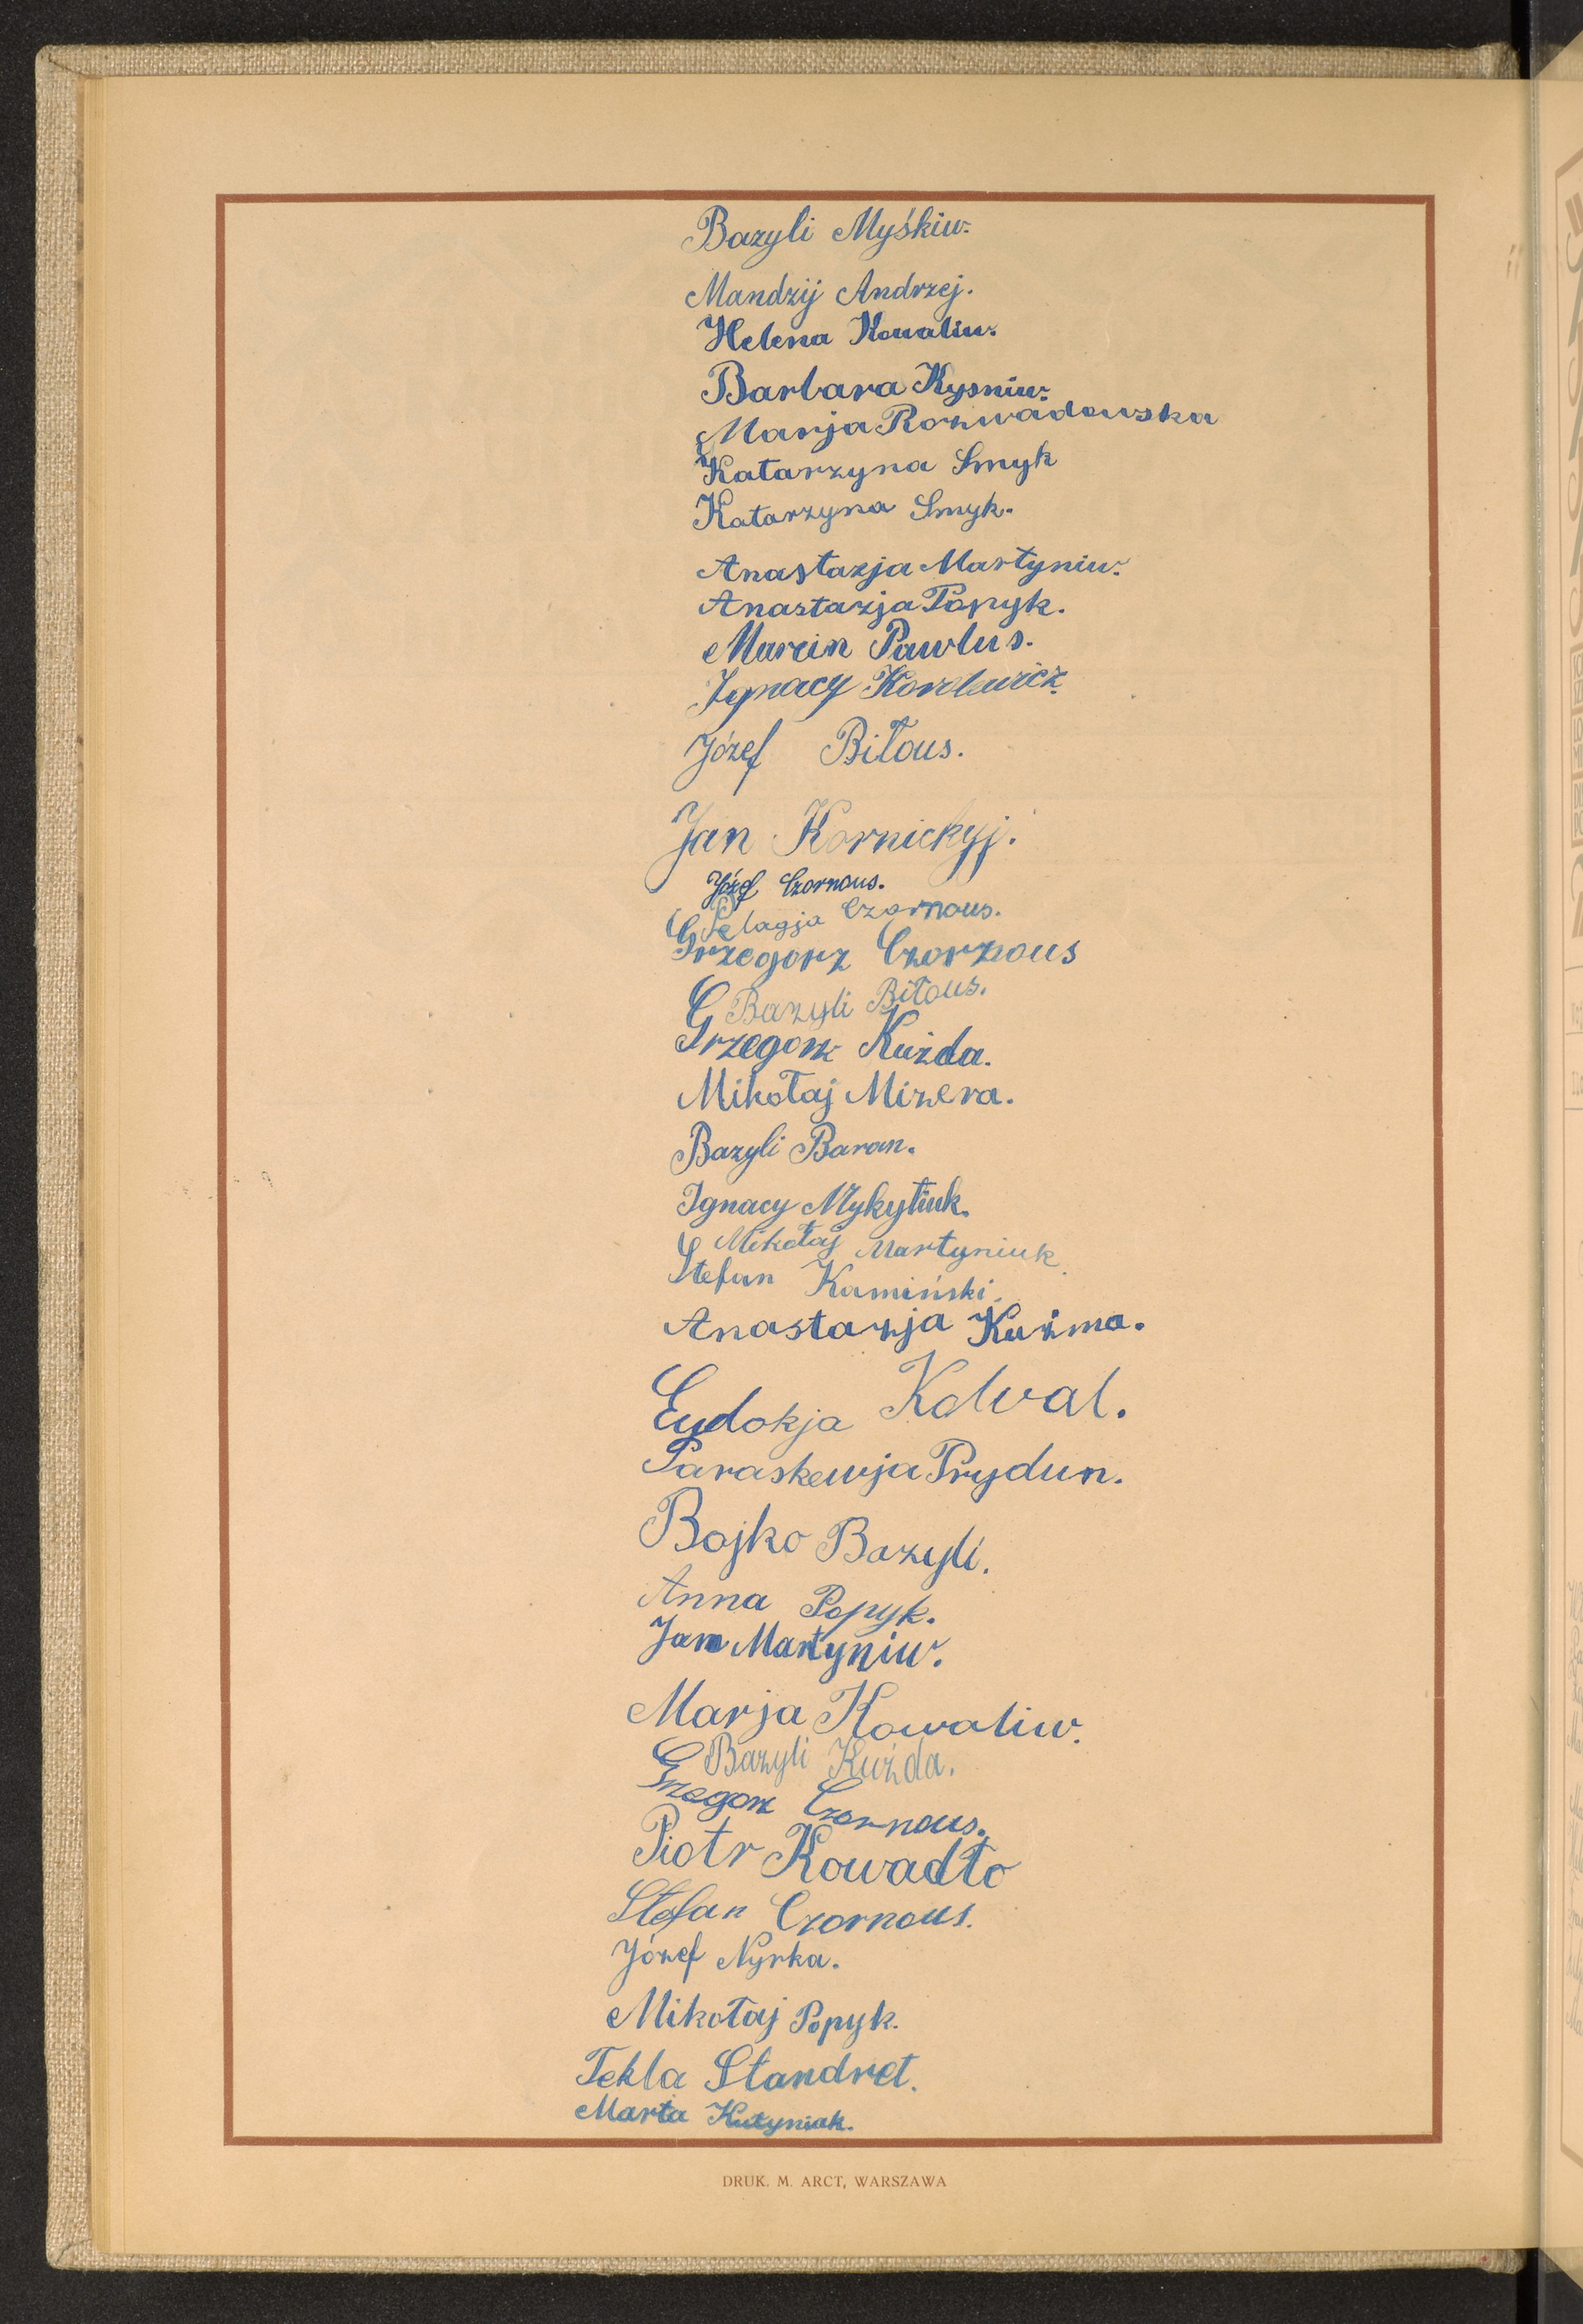 Bazyli Myśkiw.
Mandzij Andrzej.
Helena Kowaliw.
Barbara Kysniw.
Marja Rozwadowska
Katarzyna Smyk
Katarzyna Smyk.
Anastazja Martyniw.
Anastazja Popyk.
Marcin Pawlus.
Ignacy Korolewicz.
Józef Biłous.
Jan Kornickyj.
Józef Czornous.
Pelagja Czornous.
Grzegorz Czornous
Bazyli Biłous.
Grzegorz Kużda.
Mikołaj Mizera.
Bazyli Baran.
Ignacy Mykytiuk.
Mikołaj Martyniuk.
Stefan Kamiński.
Anastazja Kuźma.
Eudokja Kowal.
Paraskewja Prydun.
Bojko Bazyli.
Anna Popyk.
Jan Martyniw.
Marja Kowaliw.
Bazyli Kużda.
Grzegorz Czornous.
Piotr Kowadło
Stefan Czornous.
Józef Nyrka.
Mikołaj Popyk.
Tekla Standret.
Marta Kutyniak.
DRUK. M. ARCT, WARSZAWA